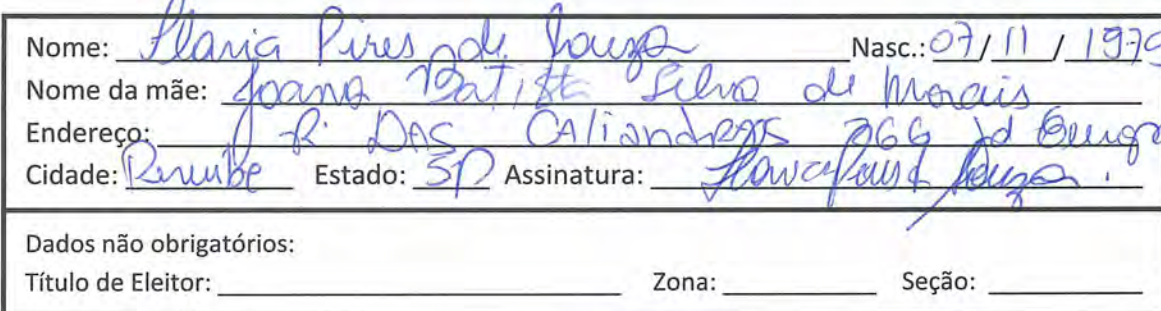 Nome: Flavia Pires de Souza Nasc.: 07/11/1979
Nome da mãe: Joana Batista Silva de Morais
Endereço: R. DAS CAliandras 266 Jd
Cidade: Peruibe Estado: SP Assinatura: Souza.
Dados não obrigatórios:
Título de Eleitor: Zona: Seção: